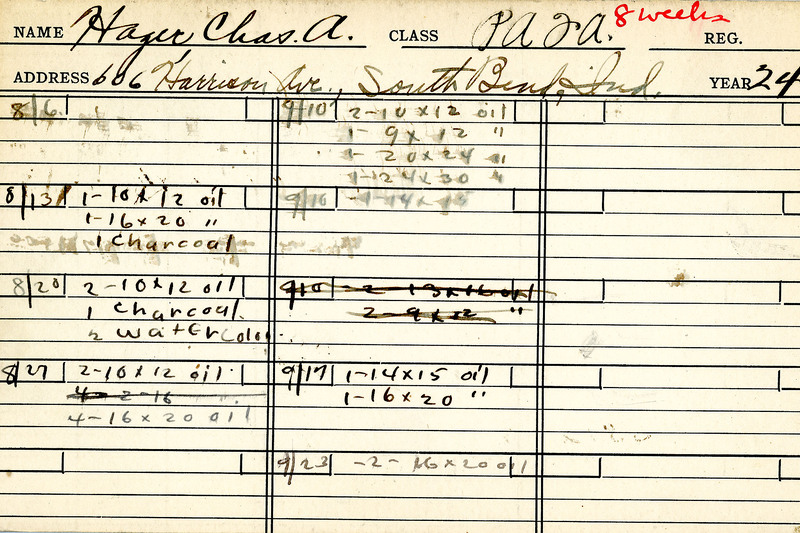 8 weeks
NAME Hager Chas. A. CLASS PA REG.
ADDRESS 606 Harrison Ave., South Bend, Ind. YEAR 24
8/6
8/13 1-10x12 oil
1-16x20 "
1 charcoal
8/20 2-10x12 oil
1 charcoal
2 watercolor
8/27 2-10x12 oil
4-2-16
4-16x20 oil
9/10 2-10x12 oil
1-9x12 "
1-20x24 "
1-24x30 "
9/10 1-14x15
9/10 2 13x16 oil
2-9x12 "
9/17 1-14x15 oil
1-16x20 "
9/23 -2-16x20 oil